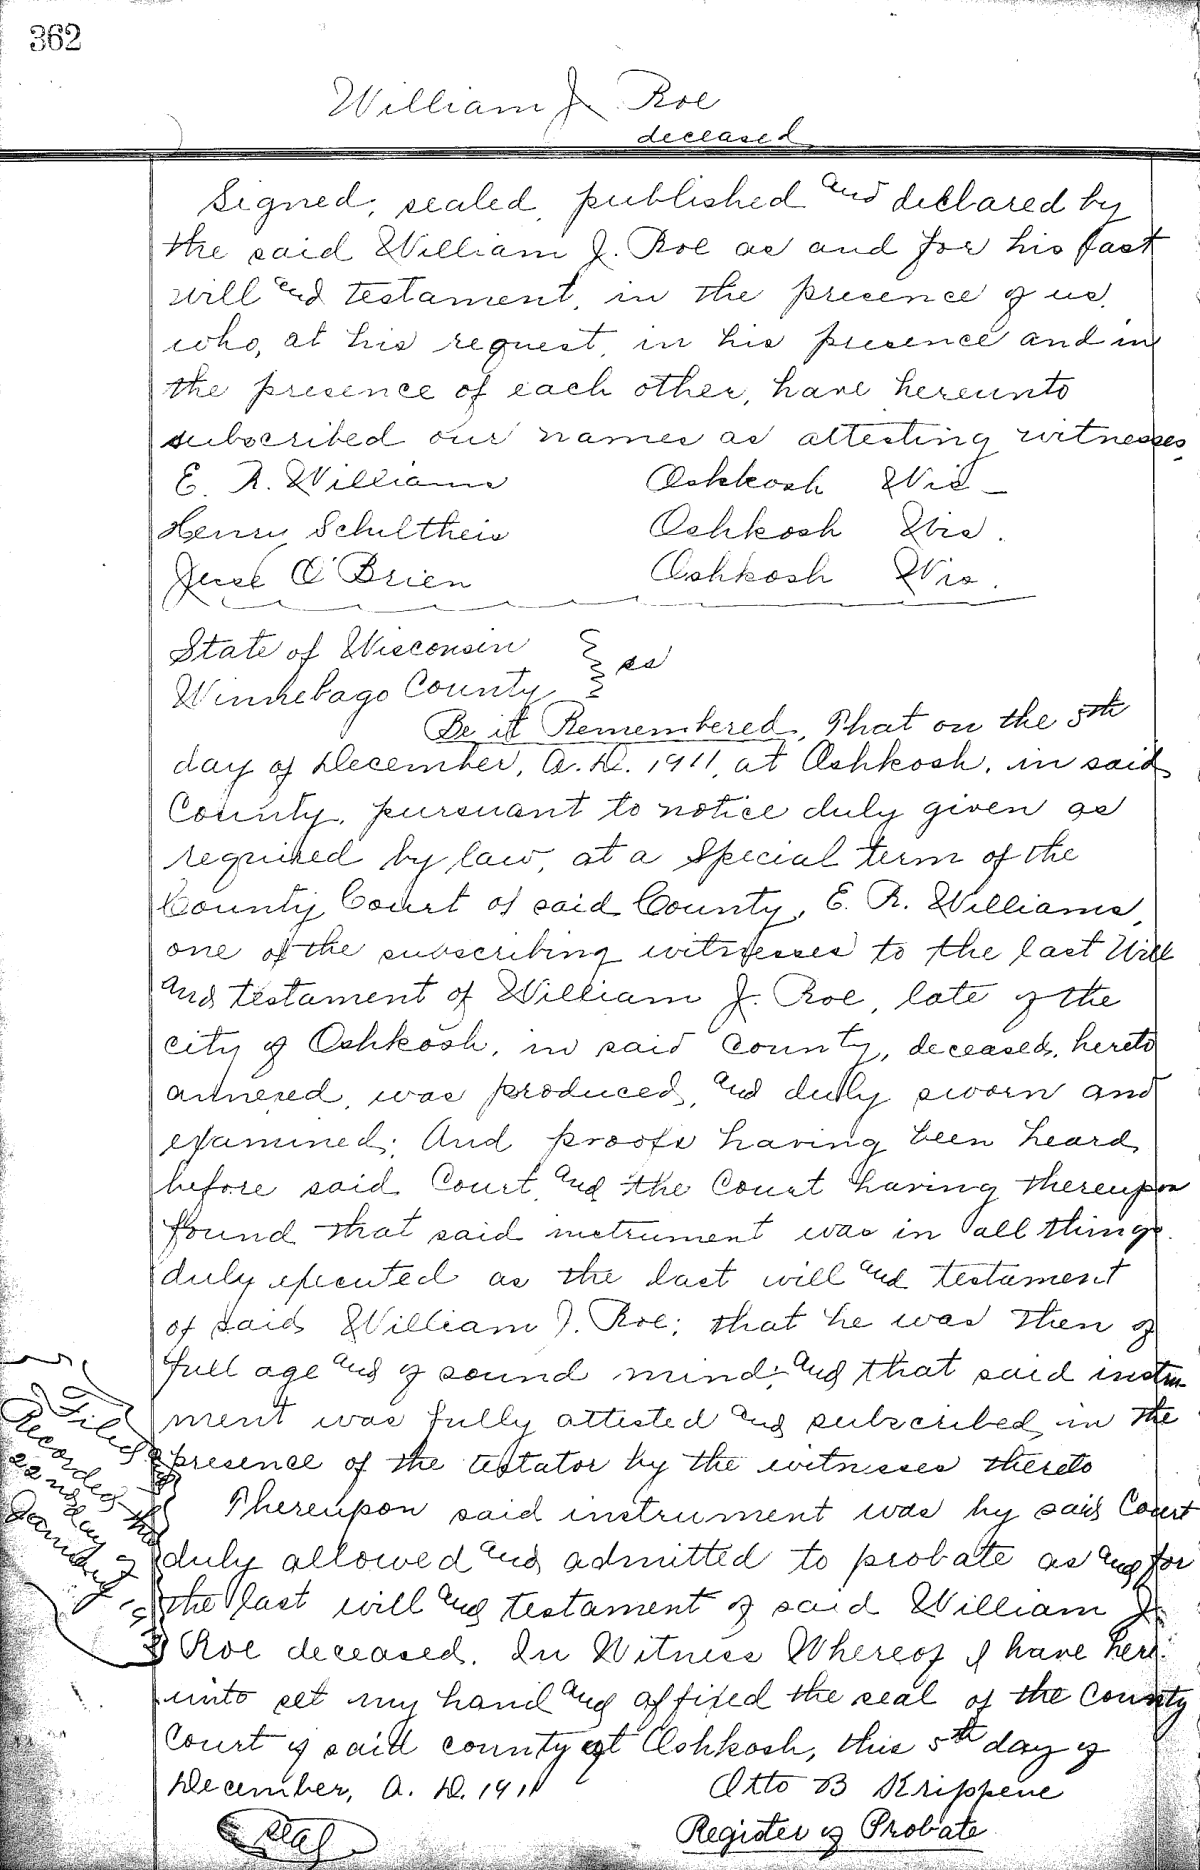 362
William J. Roe
deceased
Signed, sealed, published and declared by
the said William J. Roe as and for his last
will and testament, in the presence of us,
who, at his request, in his presence and in
the presence of each other, have hereunto
subscribed our names as attesting witnesses.
E. R. Williams Oshkosh Wis -
Henry Schultheis Oshkosh Wis.
O'Brien Oshkosh Wis.
State of Wisconsin } ss
Winnebago County
Be it Remembered, That on the 5th
day of December, A.D. 1911, at Oshkosh, in said
County, pursuant to notice duly given as
required by law, at a Special term of the
County Court of said County, E. R. Williams,
one of the subscribing witnesses to the last Will
and testament of William J. Roe, late of the
city of Oshkosh, in said County, deceased, hereto
annexed, was produced, and duly sworn and
examined; And proofs having been heard
before said Court, and the Court having thereupon
found that said instrument was in all things
duly executed as the last will and testament
of said William J. Roe; that he was then of
full age and of sound mind; and that said instru
ment was fully attested and subscribed in the
presence of the testator by the witnesses thereto
Thereupon said instrument was by said Court
duly allowed and admitted to probate as and for
the last will and testament of said William J.
Roe deceased. In Witness Whereof I have here
unto set my hand and affixed the seal of the County
Court of said county at Oshkosh, this 5th day of
December, A. D. 1911 Otto B Krippene
Seal Register of Probate
Filed and
Recorded this
22nd day of
January